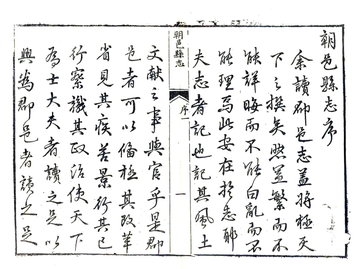 朝邑縣志序
余讀郡邑志蓋將極天
下之撰矣然蓋繁而不
能詳晦而不能白亂而不
能理焉此安在於志耶
夫志者記也記其風土
朝邑縣志
序
一
文獻之事與官乎是郡
邑者可以備極其改革
省見其疾苦景行其已
行察識其政治使天下
為士大夫者讀之足以
興為郡邑者讀之足